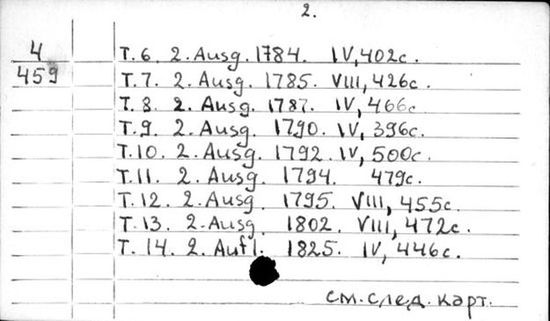 2.
4
459
T. 6. 2. Ausg. 1784. IV, 402c.
T. 7. 2. Ausg. 1785. VIII, 426c.
T. 8. 2. Ausg. 1787. IV, 466c.
T. 9. 2. Ausg. 1790. IV, 396c.
T. 10. 2. Ausg. 1792. IV, 500c.
T. 11. 2. Ausg. 1794. 479c.
T. 12. 2. Ausg. 1795. VIII, 455c.
T. 13. 2. Ausg. 1802. VIII, 472c.
T. 14. 2. Aufl. 1825. IV, 446c.
см. след. карт.